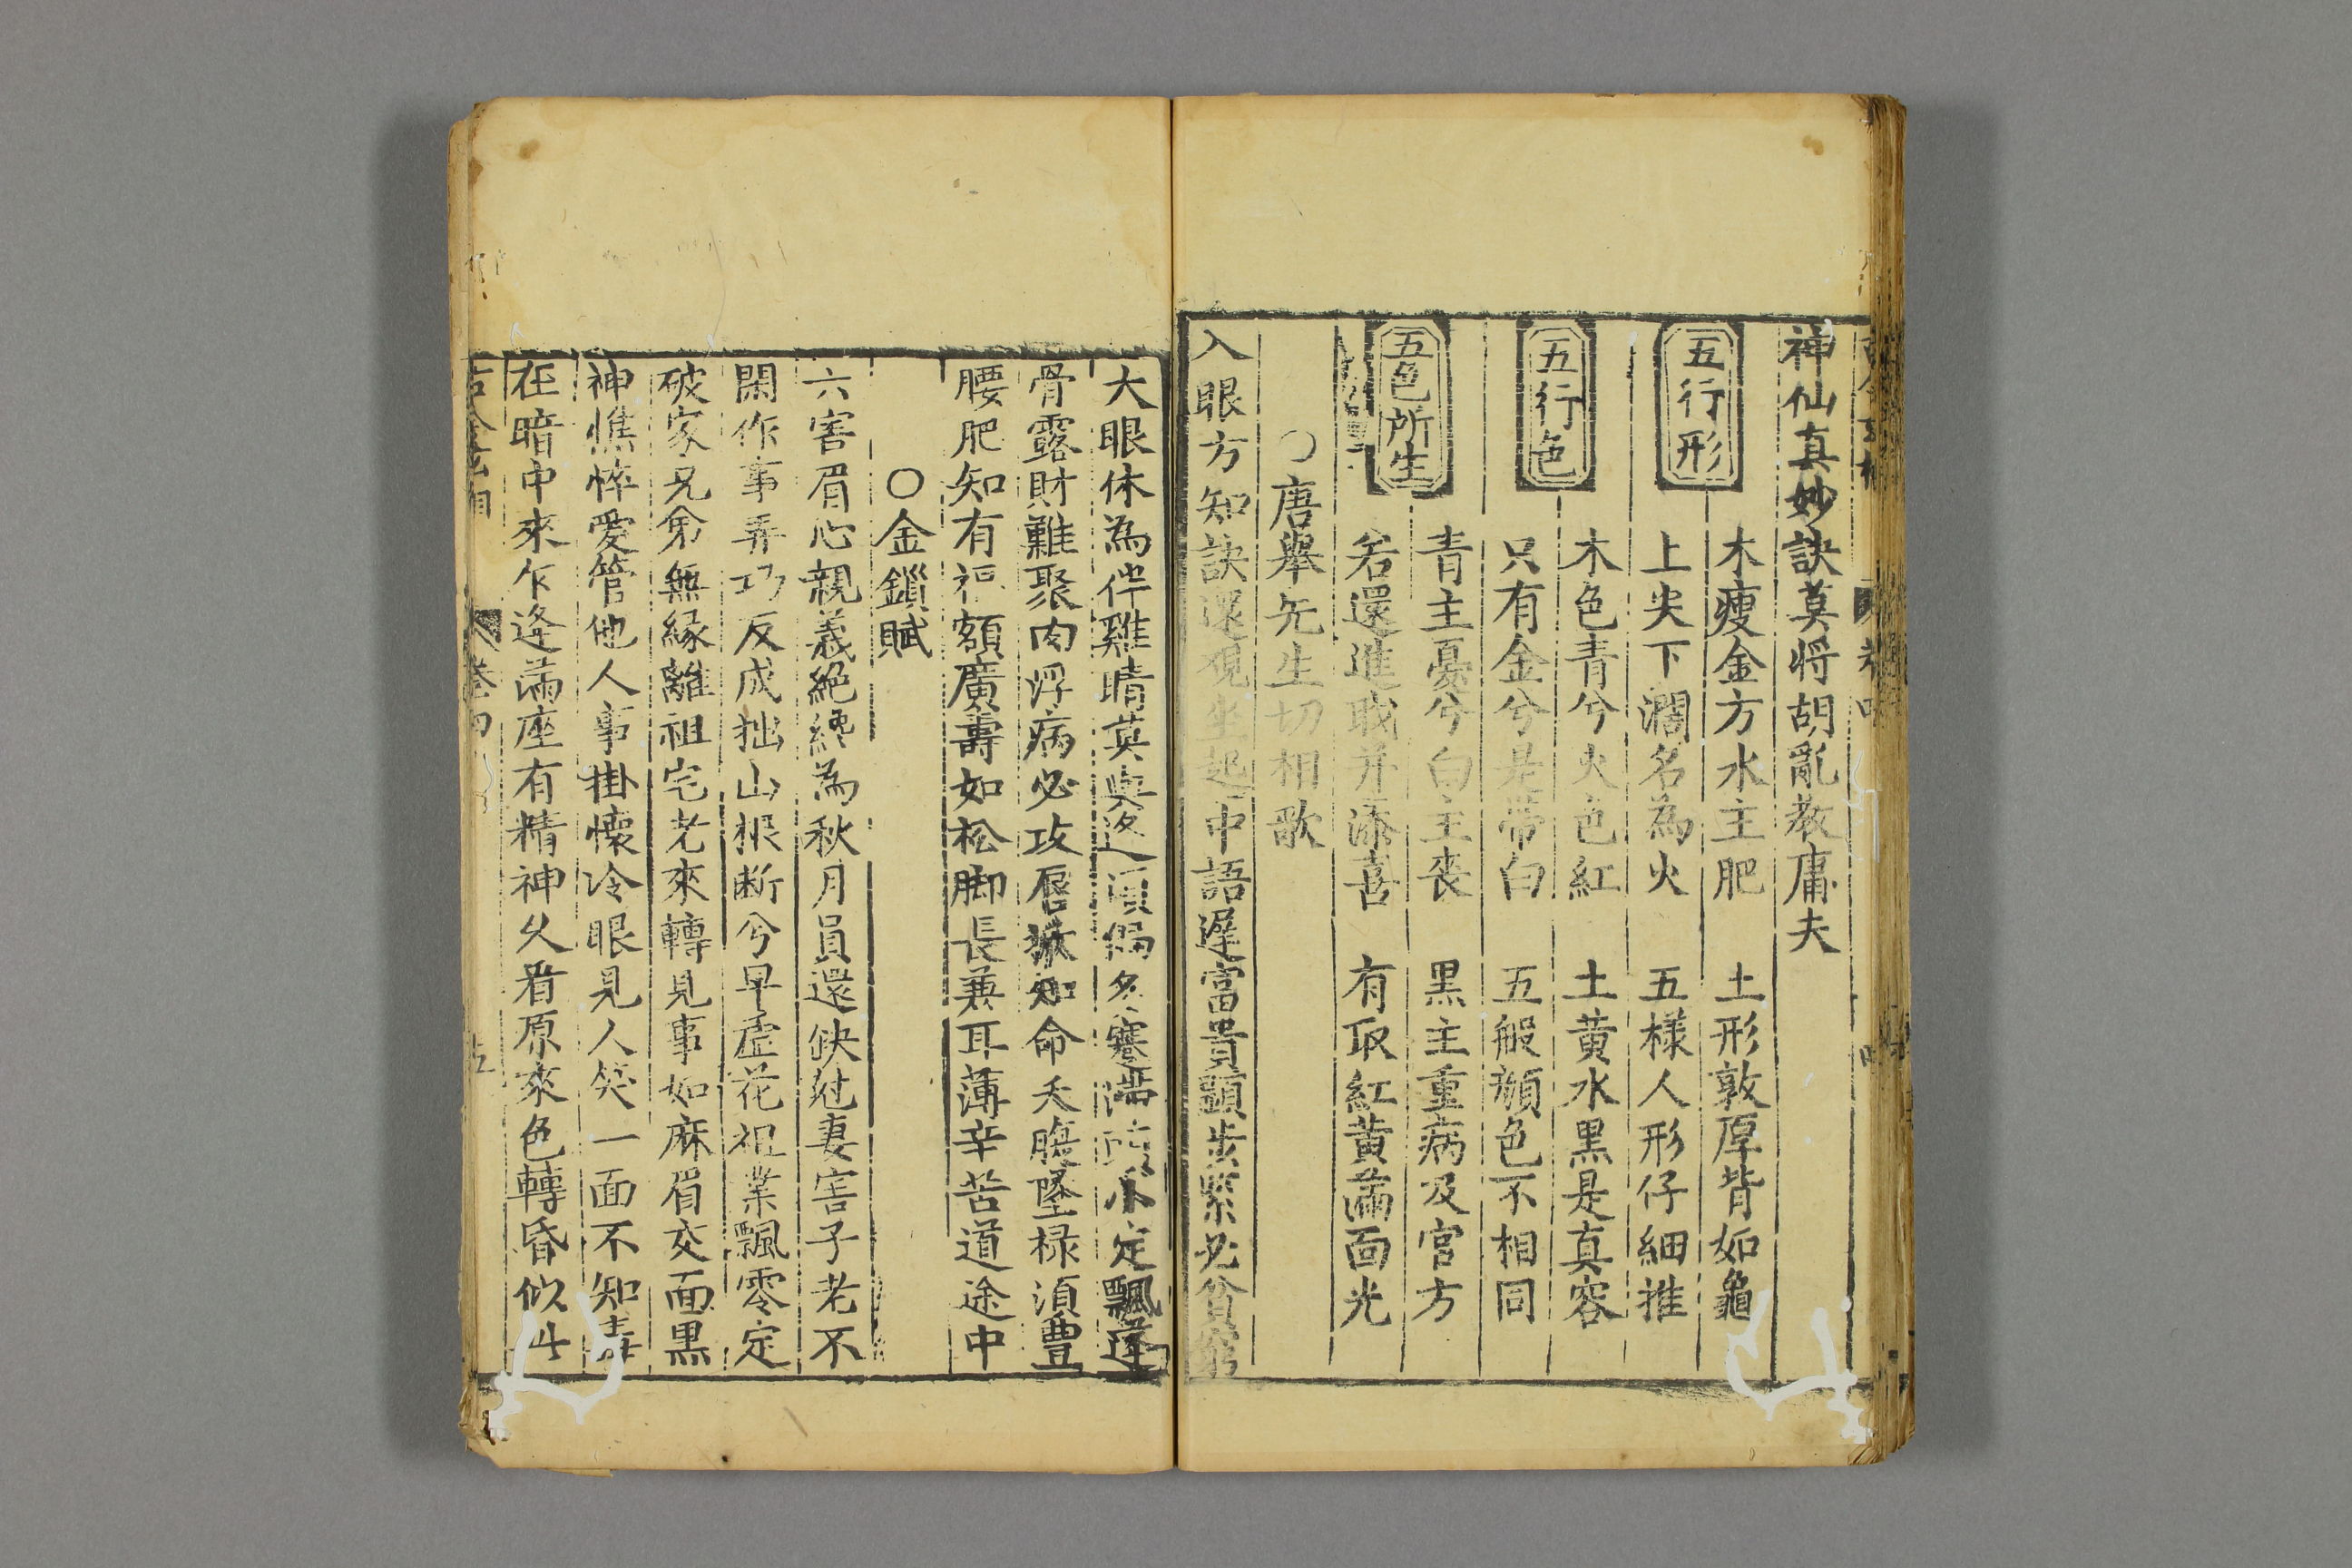 神仙真妙訣莫将胡亂教庸夫
五行形
木瘦金方水主肥 土形敦厚背如龜
上尖下濶名為火 五樣人形仔細推
五行色
木色青兮火色紅 土黄水黒是真容
只有金兮是帶白 五般顏色不相同
五色所生
青主憂兮白主喪 黒主重病及官方
若還進職并添喜 有取紅黄滿面光
○唐舉先生切相歌
入眼方知訣還視坐起中語遲富貴顕歩緊必貧窮
大眼休為伴雞睛莫與逐頭偏多蹇滯小定飄蓬
骨露財難聚肉浮病必攻唇掀知命夭腹墜禄湏豊
腰肥知有福額廣壽如松脚長兼耳薄辛苦道途中
○金鎻賦
六害眉心親義絶纔為秋月員還缺尅妻害子老不
閑作事弄巧反成拙山根断兮早虛花祖業飄零定
破家兄弟無緣離祖宅老來轉見事如麻眉交面黒
神憔悴愛管他人事掛懷冷眼見人笑一面不知毒
在暗中來乍逢滿座有精神久看原來色轉昏似此
卷四